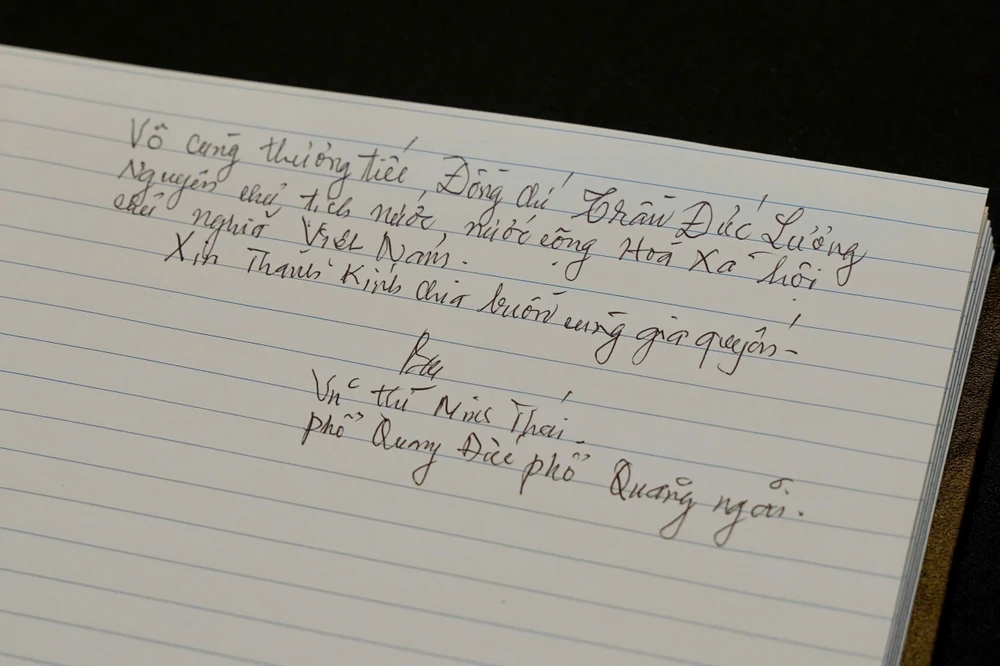 Vô cùng thương tiếc, Đồng chí Trần Đức Lương
Nguyên chủ tịch nước, nước cộng Hoà Xã hội
chủ nghĩa Việt Nam.
Xin Thành Kính chia buồn cùng gia quyến -
thị Minh Thái.
phổ Quang Đức phổ Quảng ngãi.